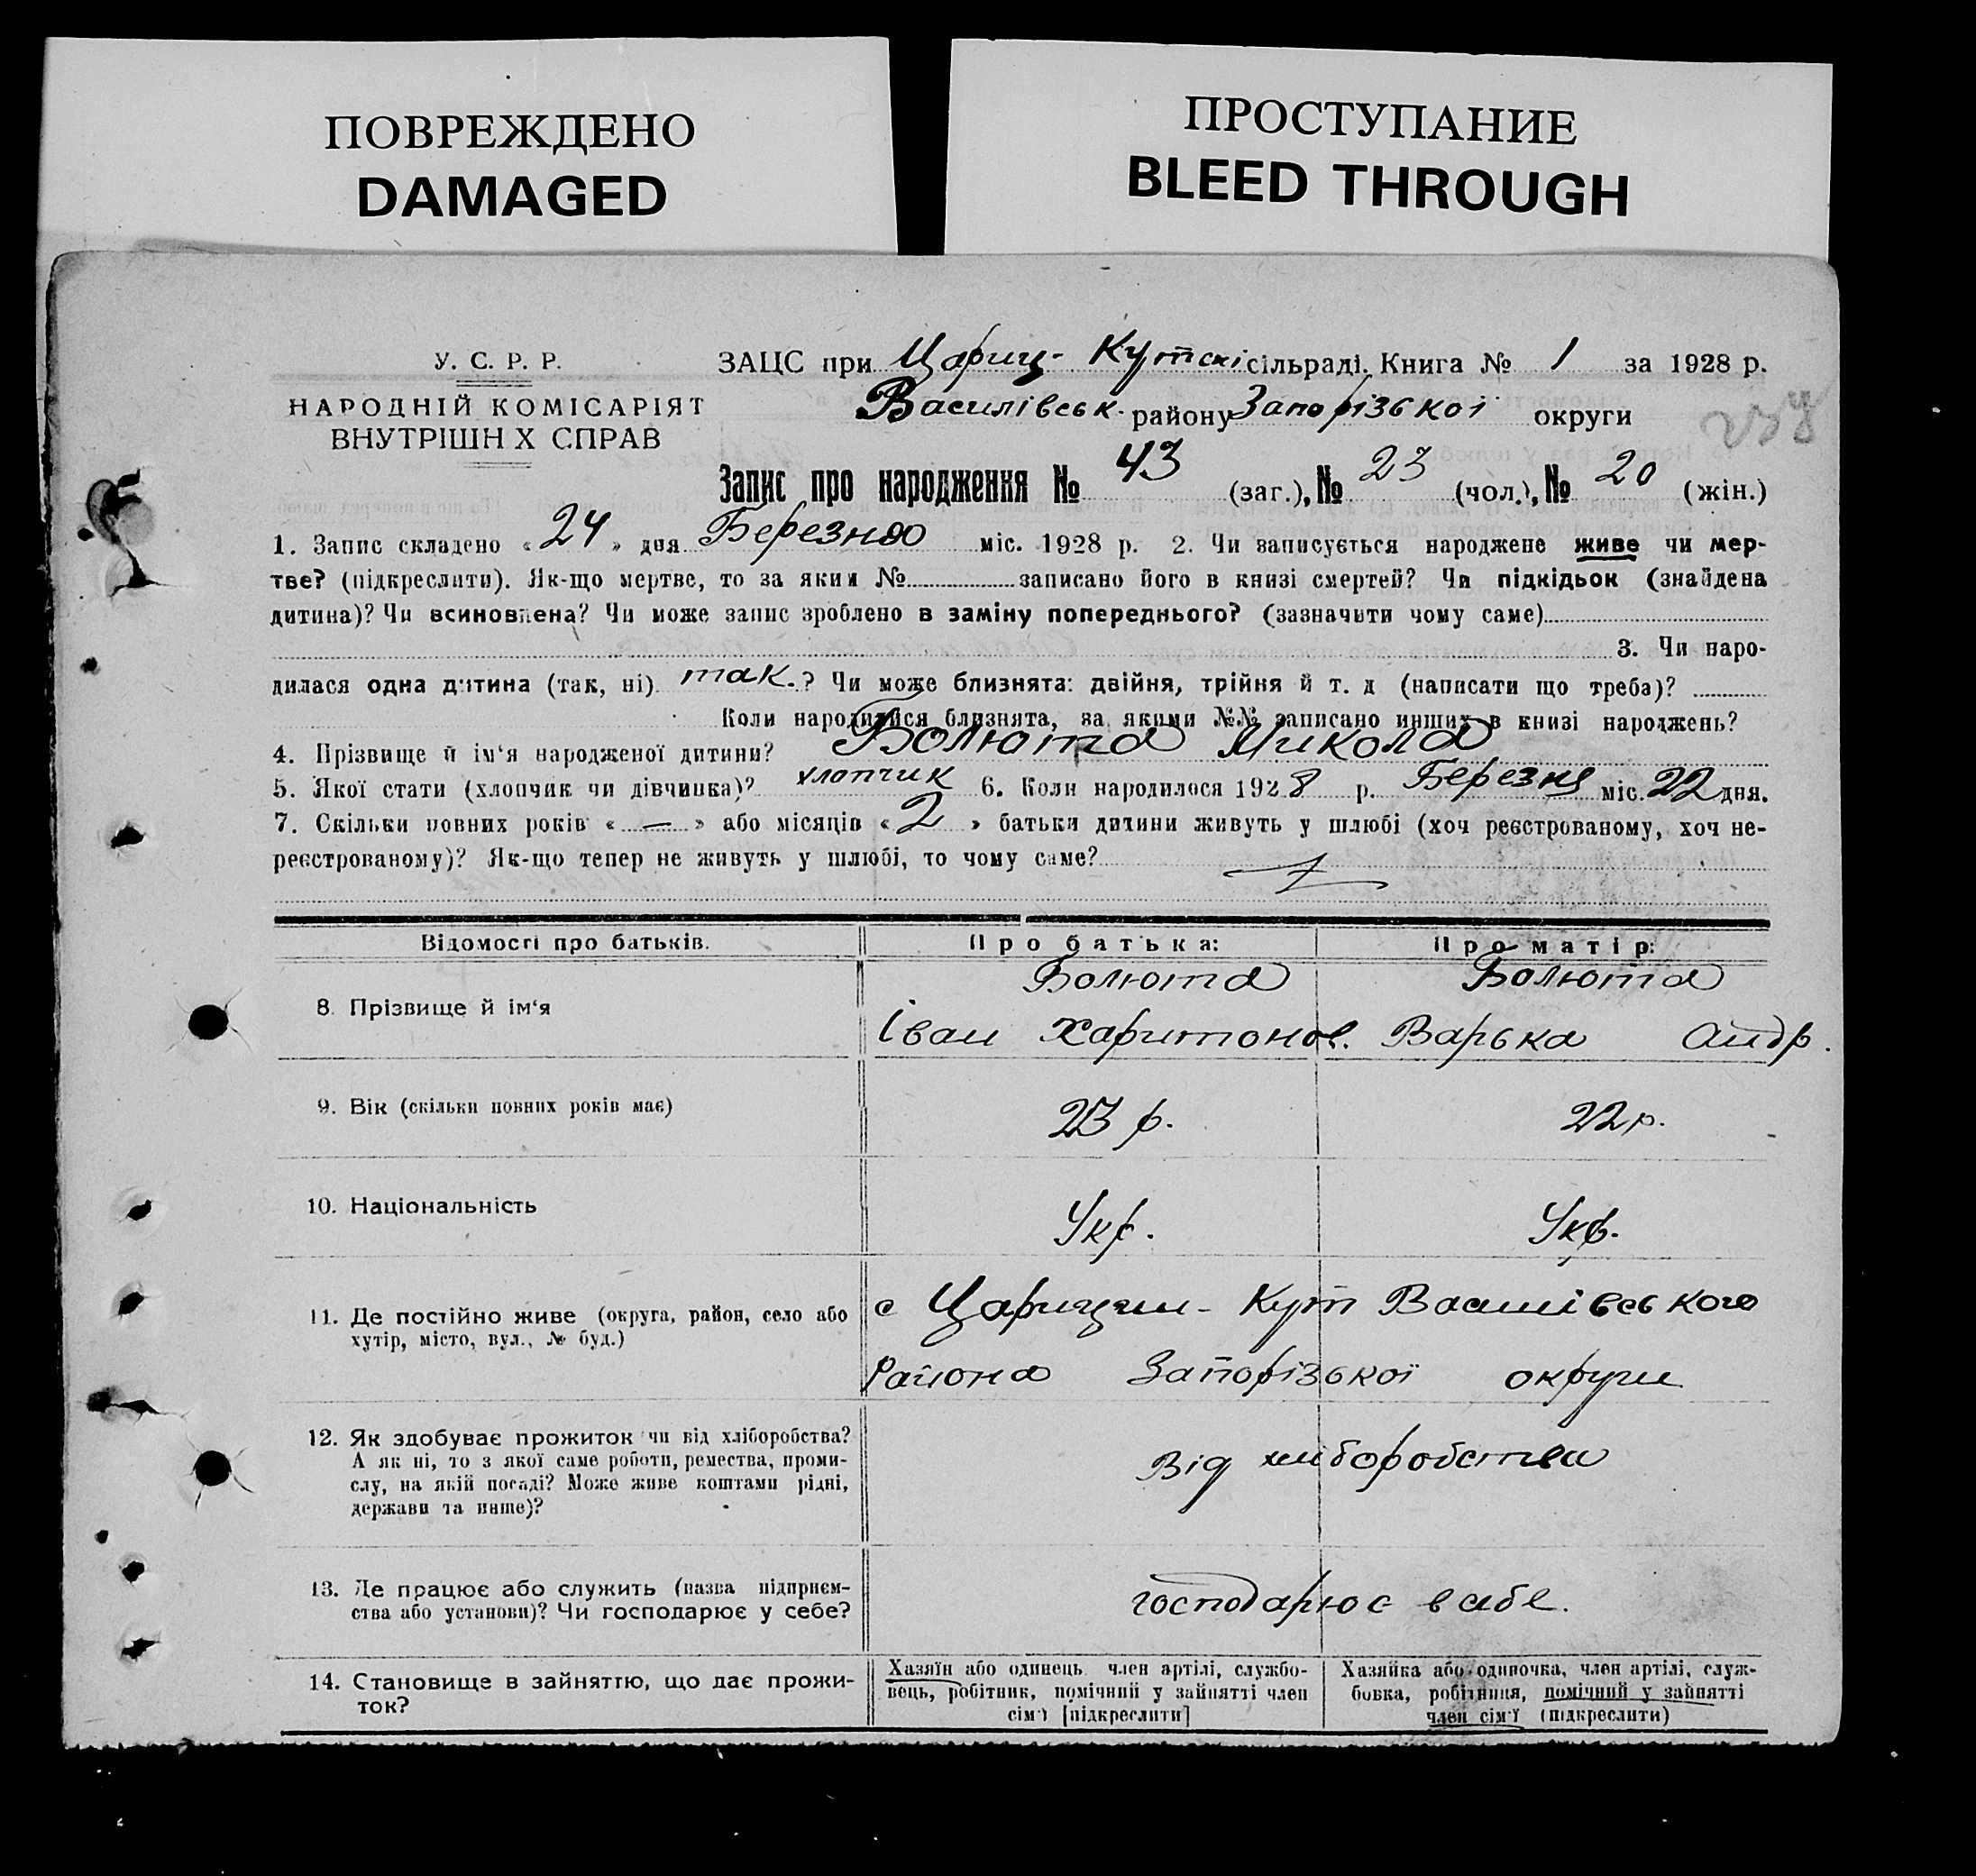 ПОВРЕЖДЕНО
DAMAGED
ПРОСТУПАНИЕ
BLEED THROUGH
У. С. Р. Р.
НАРОДНІЙ КОМІСАРІЯТ
ВНУТРІШН Х СПРАВ
ЗАЦС при Цариц- Кутскі сільраді. Книга № 1 за 1928 р.
Василівськ. району Запорізької округи
Запис про народження № 43 (заг.), № 23 (чол.), № 20 (жін.)
1. Запис складено « 24 » дня Березня міс. 1928 р. 2. Чи записується народжене живе чи мер-
тве? (підкреслити). Як-що мертве, то за яким № записано його в книзі смертей? Чи підкідьок (знайдена
дитина)? Чи всиновлена? Чи може запис зроблено в заміну попереднього? (зазначити чому саме)
3. Чи наро-
дилася одна дитина (так, ні) так.? Чи може близнята: двійня, трійня й т. д (написати що треба)?
Коли народилися близнята, за якими №№ записано инших в книзі народжень?
4. Прізвище й ім'я народженої дитини? Болюта Микола
5. Якої стати (хлопчик чи дівчинка)? хлопчик 6. Коли народилося 1928 р. Березня міс. 22 дня.
7. Скільки повних років « — » або місяців « 2 » батьки дитини живуть у шлюбі (хоч реєстрованому, хоч не-
реєстрованому)? Як-що тепер не живуть у шлюбі, то чому саме?
Відомості про батьків. Про батька: Про матір:
8. Прізвище й ім'я Болюта Болюта
Іван Харитонов. Варька Андр.
9. Вік (скільки повних років має) 23 р. 22 р.
10. Національність Укр. Укр.
11. Де постійно живе (округа, район, село або
хутір, місто, вул., № буд.)
с Царицин- Кут Василівського
Района Запорізької округи
12. Як здобуває прожиток чи від хліборобства?
А як ні, то з якої саме роботи, ремества, проми-
слу, на якій посаді? Може живе коштами рідні,
держави та инше)?
Від хліборобства
13. Де працює або служить (назва підприєм-
ства або установи)? Чи господарює у себе?
господарює в себе.
14. Становище в зайняттю, що дає прожи-
ток?
Хазяїн або одинець член артілі, службо-
вець, робітник, помічний у зайнятті член
сім'ї [підкреслити]
Хазяйка або одиночка, член артілі, служ-
бовка, робітниця, помічний у зайнятті
член сім'ї (підкреслити)